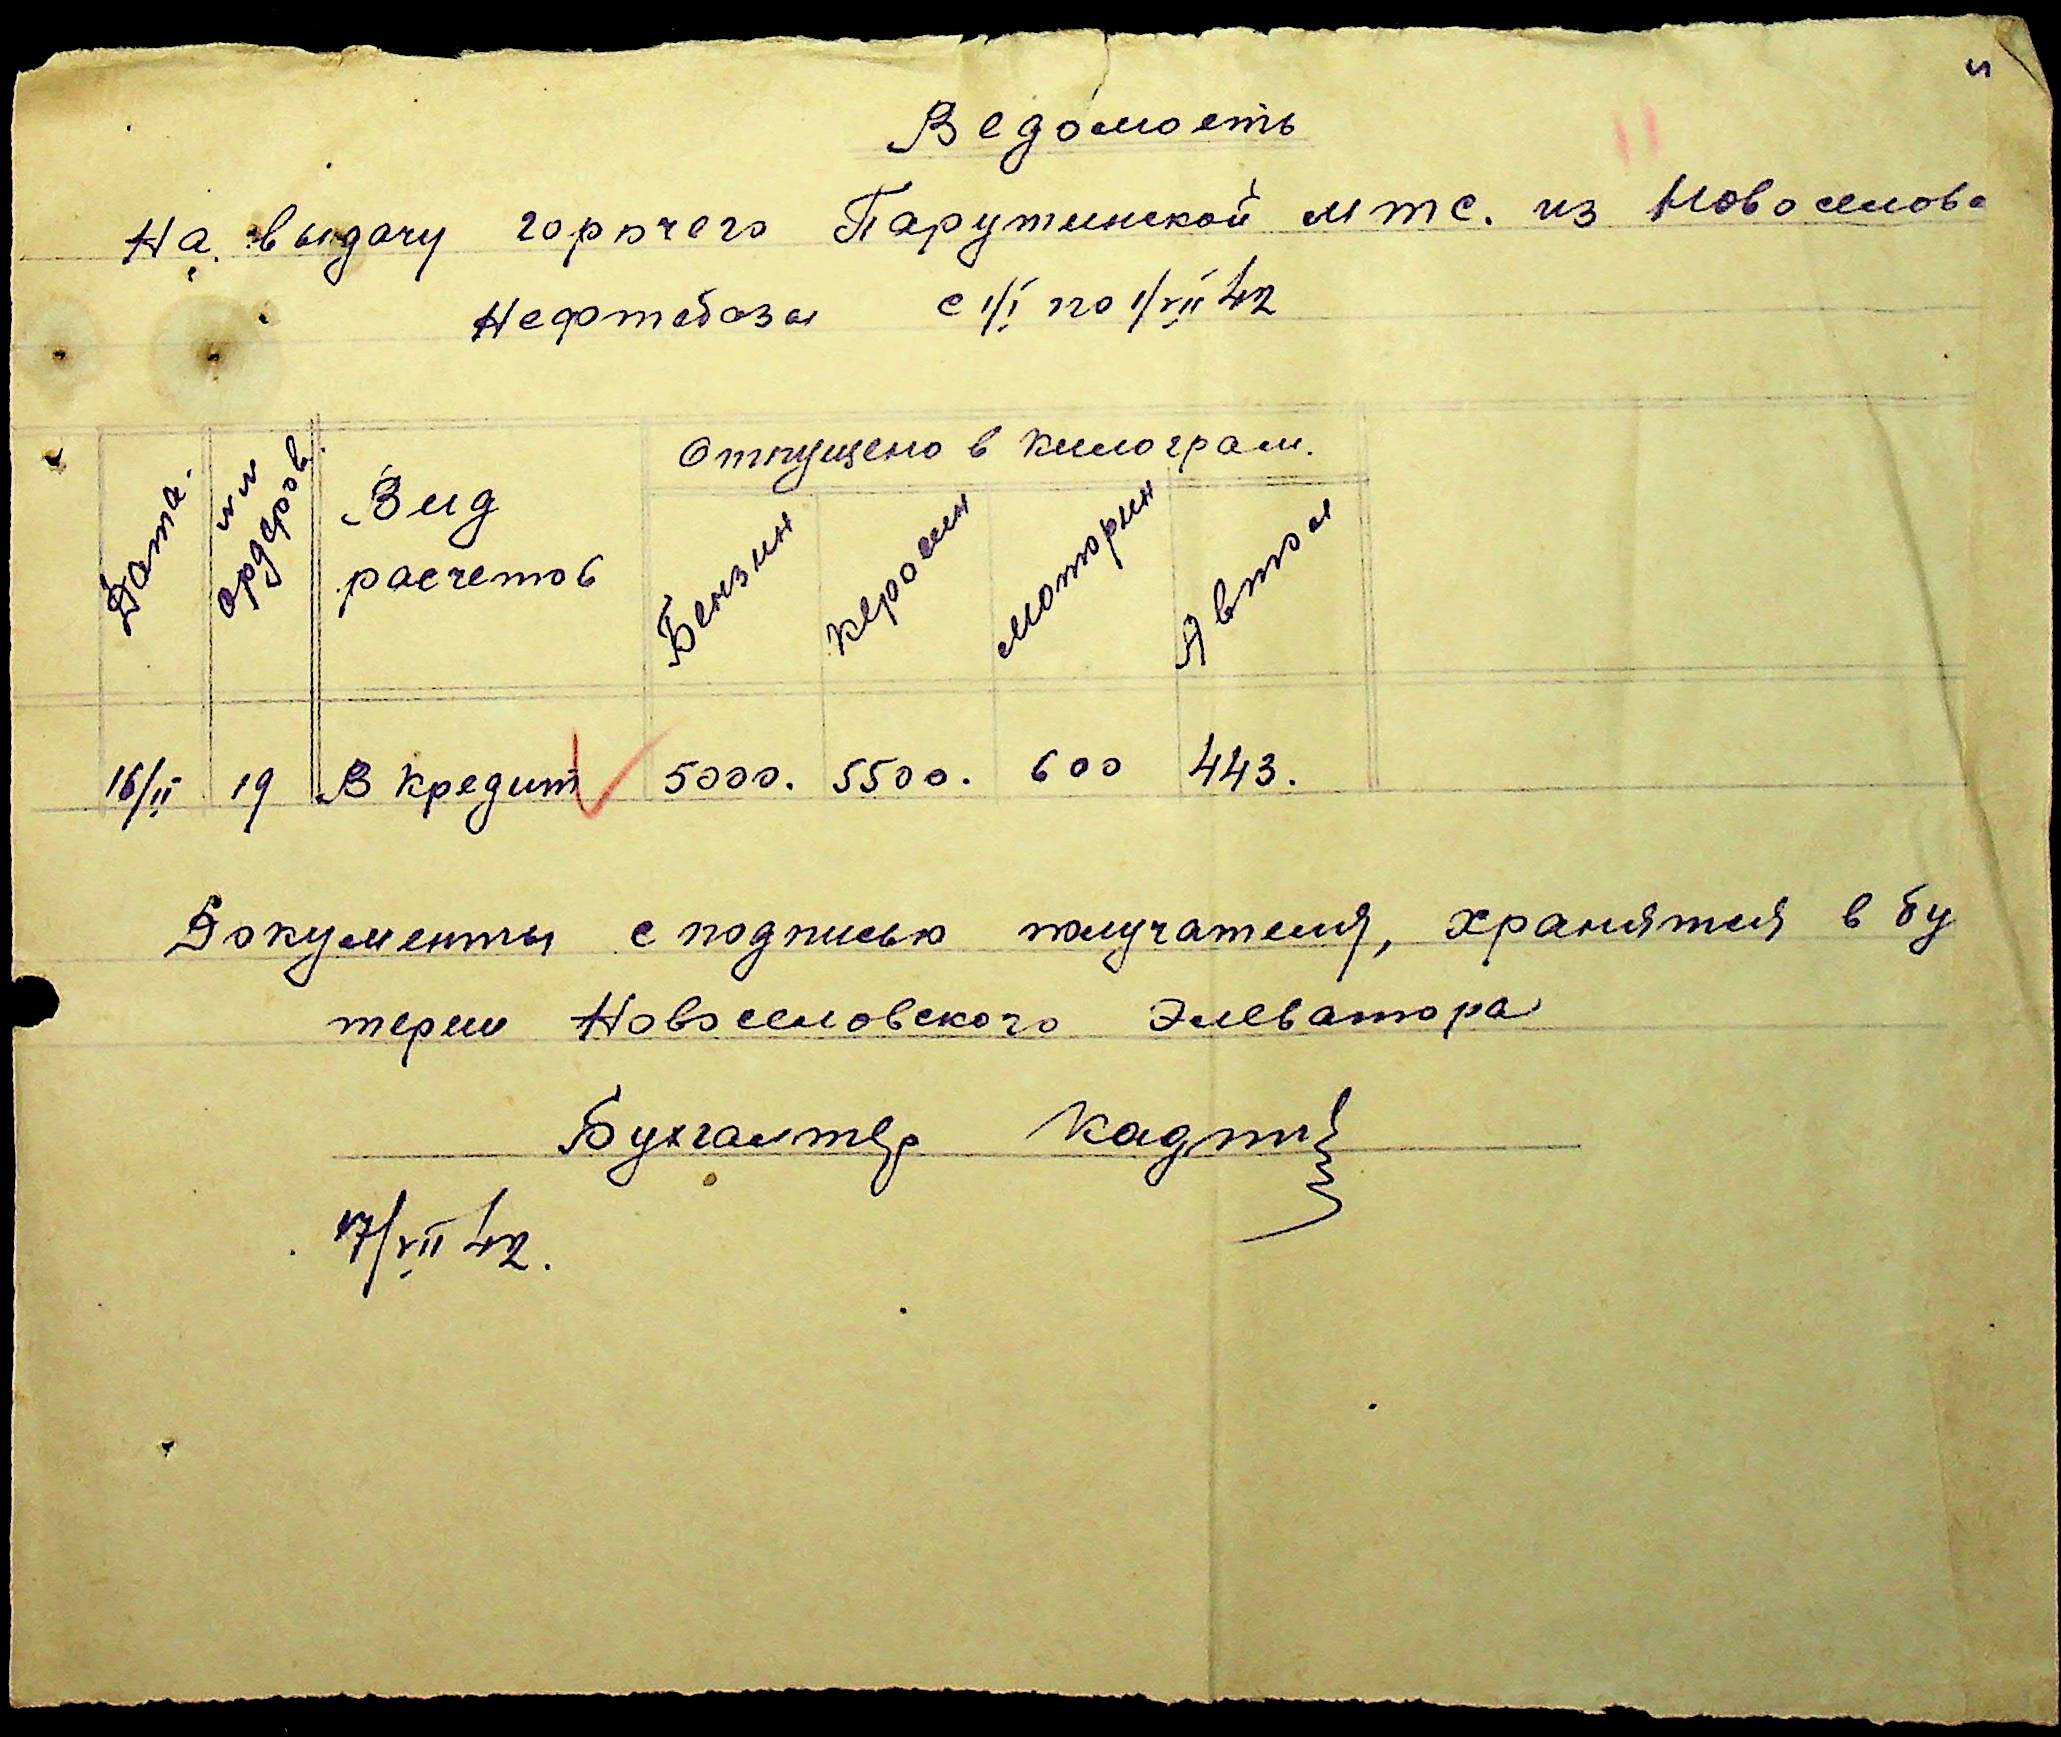 Ведомость
На выдачу горючего Парутинской мтс. из Новоселов
Нефтебазы с 1/I по 1/VII 42
Дата.
нн ордеров.
Вид расчетов
Отпущено в килограм.
Бензин Керосин Моторин Автол
16/II 19 В кредит 5000. 5500. 600 443.
Документы с подписью получателя, хранятся в бу
терии Новоселовского Элеватора
Бухгалтер
17/VII 42.